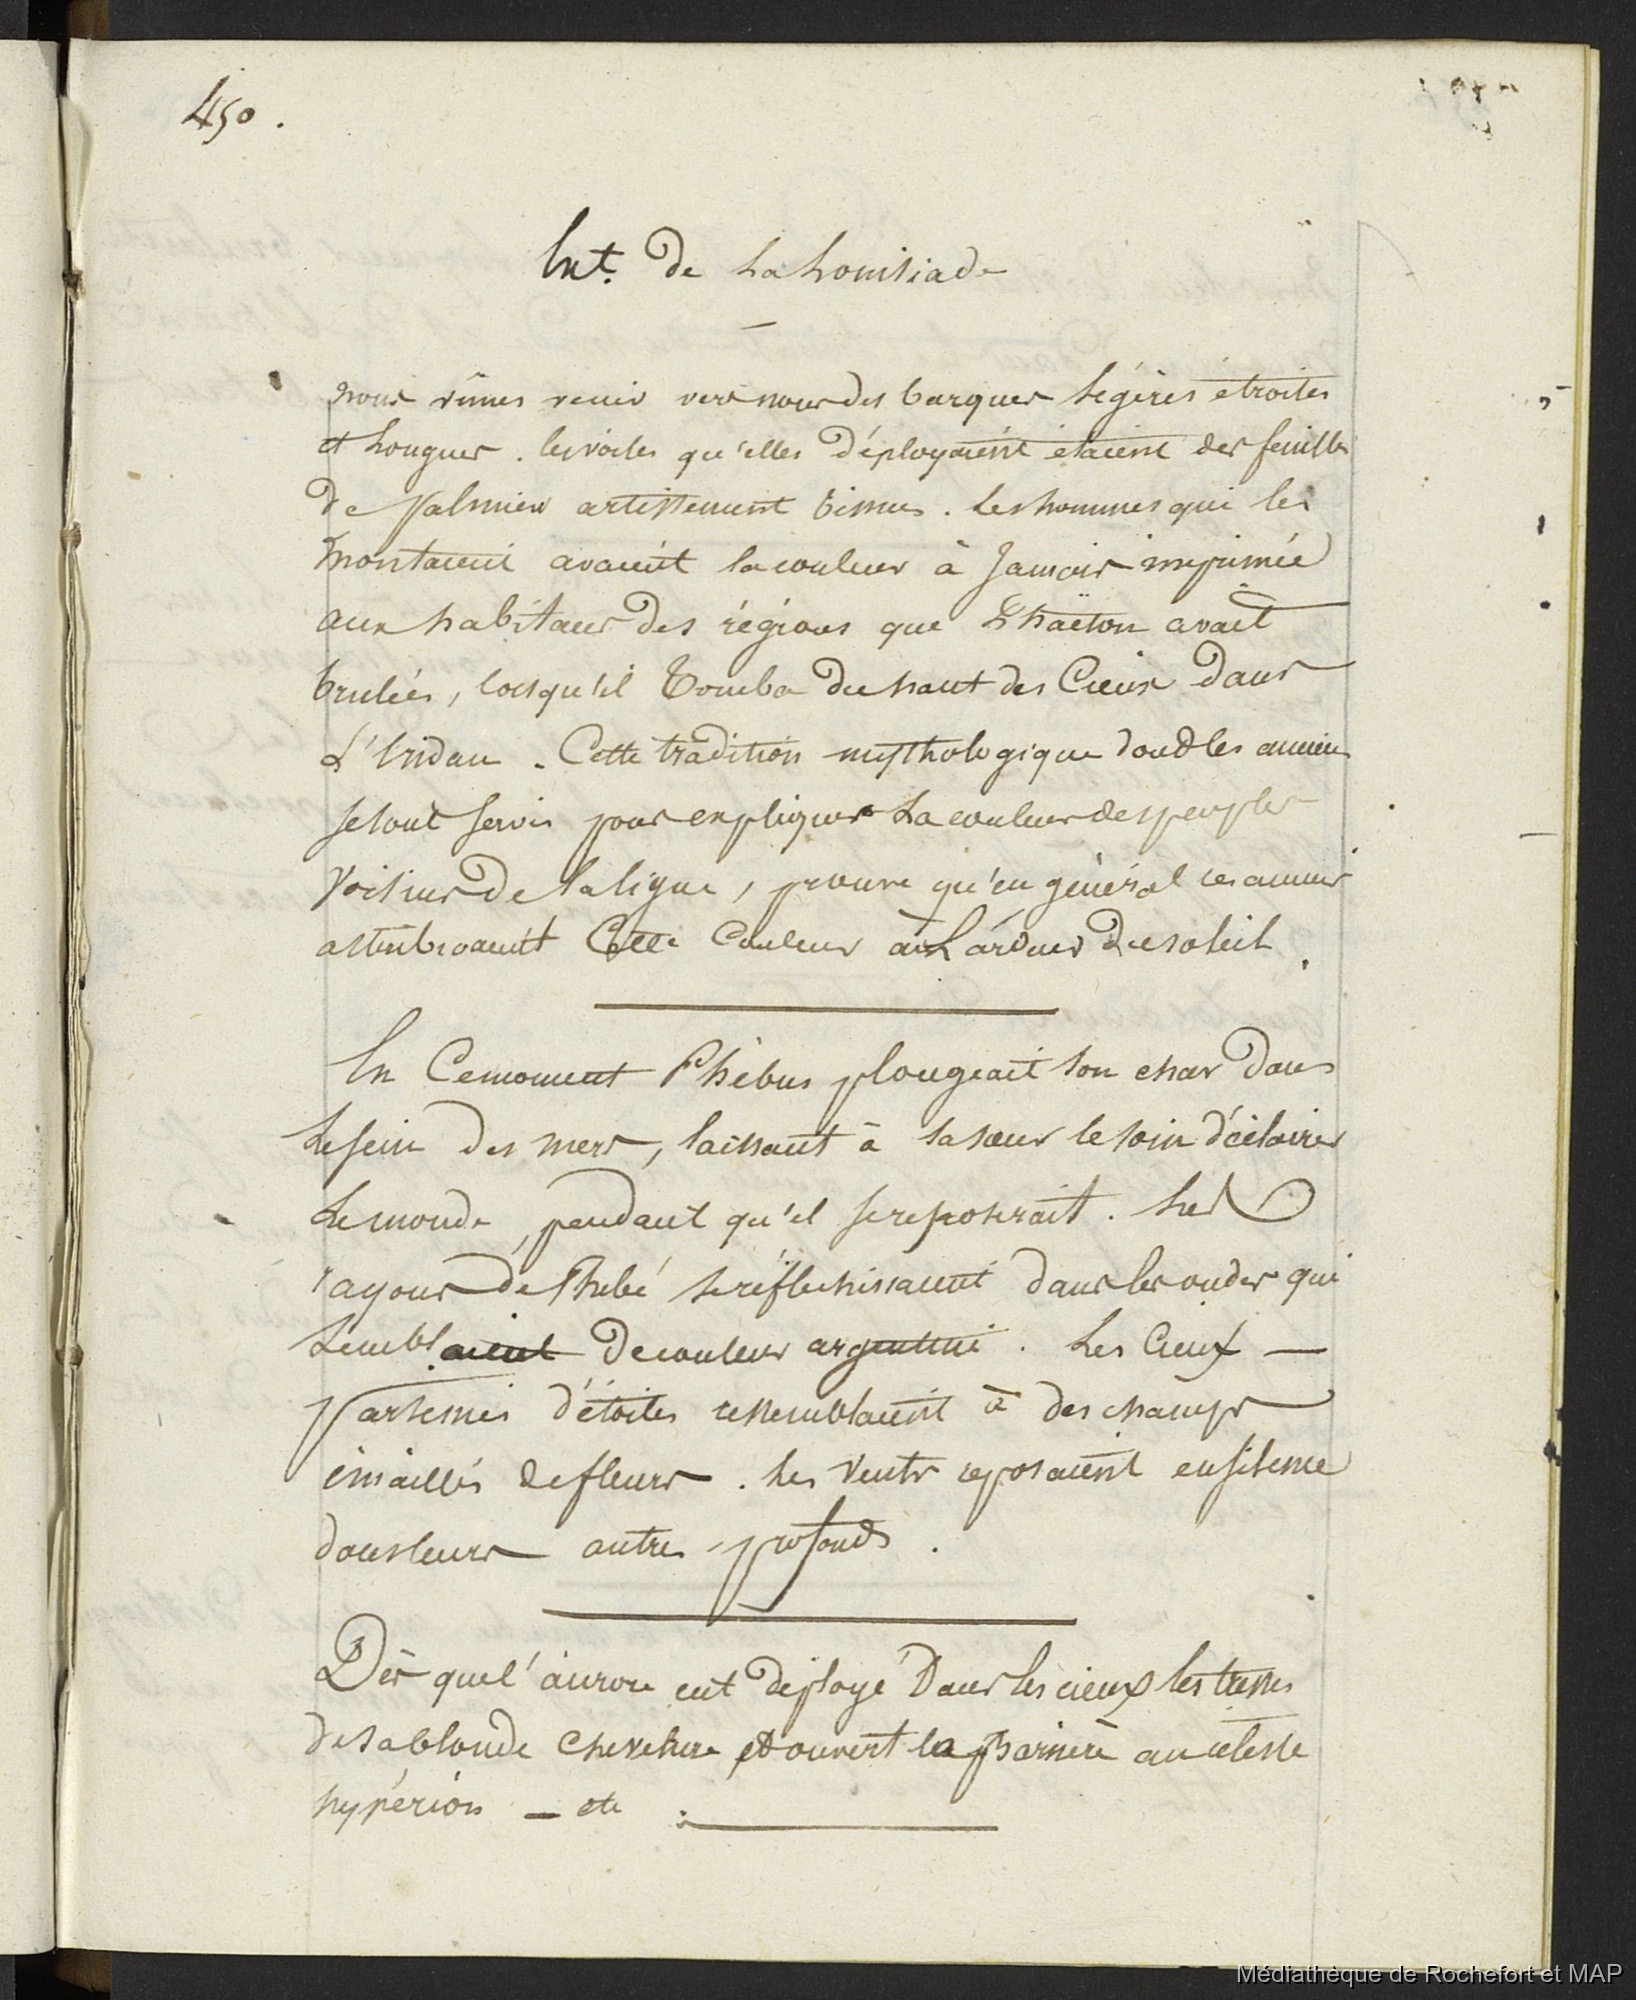 450.
Ext. de La Louisiade
nous vîmes venir vers nous des barques Légères étroites
et Longues. les voiles qu'elles déployaient étaient des feuilles
de palmier artistement tissues. Les hommes qui les
montaient avaient la couleur à Jamais imprimée
aux habitans des régions que Phaëton avait
brulées, lorsqu'il Tomba du haut des Cieux dans
L'Eridan. Cette tradition mythologique dont les anciens
se sont servis pour expliquer La couleur des peuples
Voisins de la ligne, prouve qu'en général ces anciens
attribuaient Cette Couleur à L'ardeur du soleil.
En Ce moment Phébus plongeait son char dans
Le sein des mers, laissant à sa sœur le soin d'éclairer
Le monde, pendant qu'il se reposerait. Les
rayons de Phebé se réflechissaient dans les ondes qui
Semblaient de couleur argentine. Les Cieux —
parsemés d'étoiles ressemblaient à des champs
émaillés de fleurs. Les Vents reposaient en silence
dans leurs antres profonds.
Dès que l'aurore eut déployé Dans les cieux les tresses
de sa blonde chevelure et ouvert la barrière au céleste
hypérion — etc.
Médiathèque de Rochefort et MAP